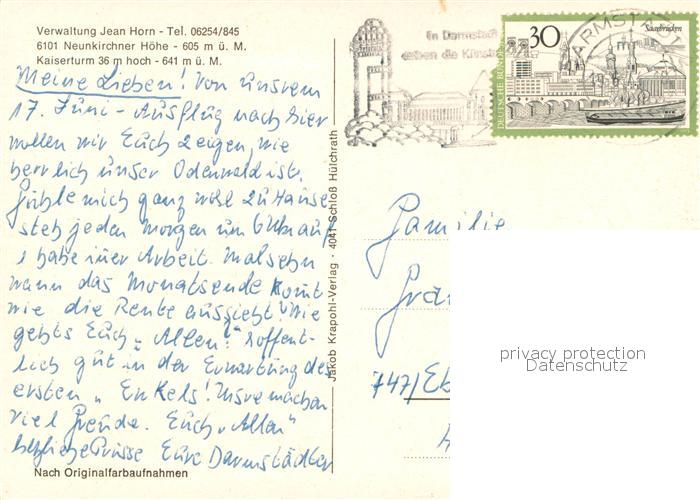 Verwaltung Jean Horn - Tel. 06254/845
6101 Neunkirchner Höhe - 605 m ü. M.
Kaiserturm 36 m hoch - 641 m ü. M.
Meine Lieben! Von unsrem
17. Juni-Ausflug nach hier
wollen wir Euch zeigen, wie
herrlich unser Odenwald ist.
Fühle mich ganz wohl zu Hause
steh jeden Morgen um 6 Uhr auf,
habe immer Arbeit. Malsehn
wann das Monatsende kommt
wie die Rente aussieht. Wie
gehts Euch „Allen"? Hoffent-
lich gut in der Erwartung des
ersten „Enkels! Unsre machen
viel Freude. Euch „Allen"
herzliche Grüsse Eure Darmstädter
Nach Originalfarbaufnahmen
Jakob Krapohl-Verlag · 4041 Schloß Hülchrath
In Darmstadt
leben die Künste
30
Saarbrücken
DEUTSCHE BUNDES
ARMST
Familie
747/Eb
privacy protection
Datenschutz